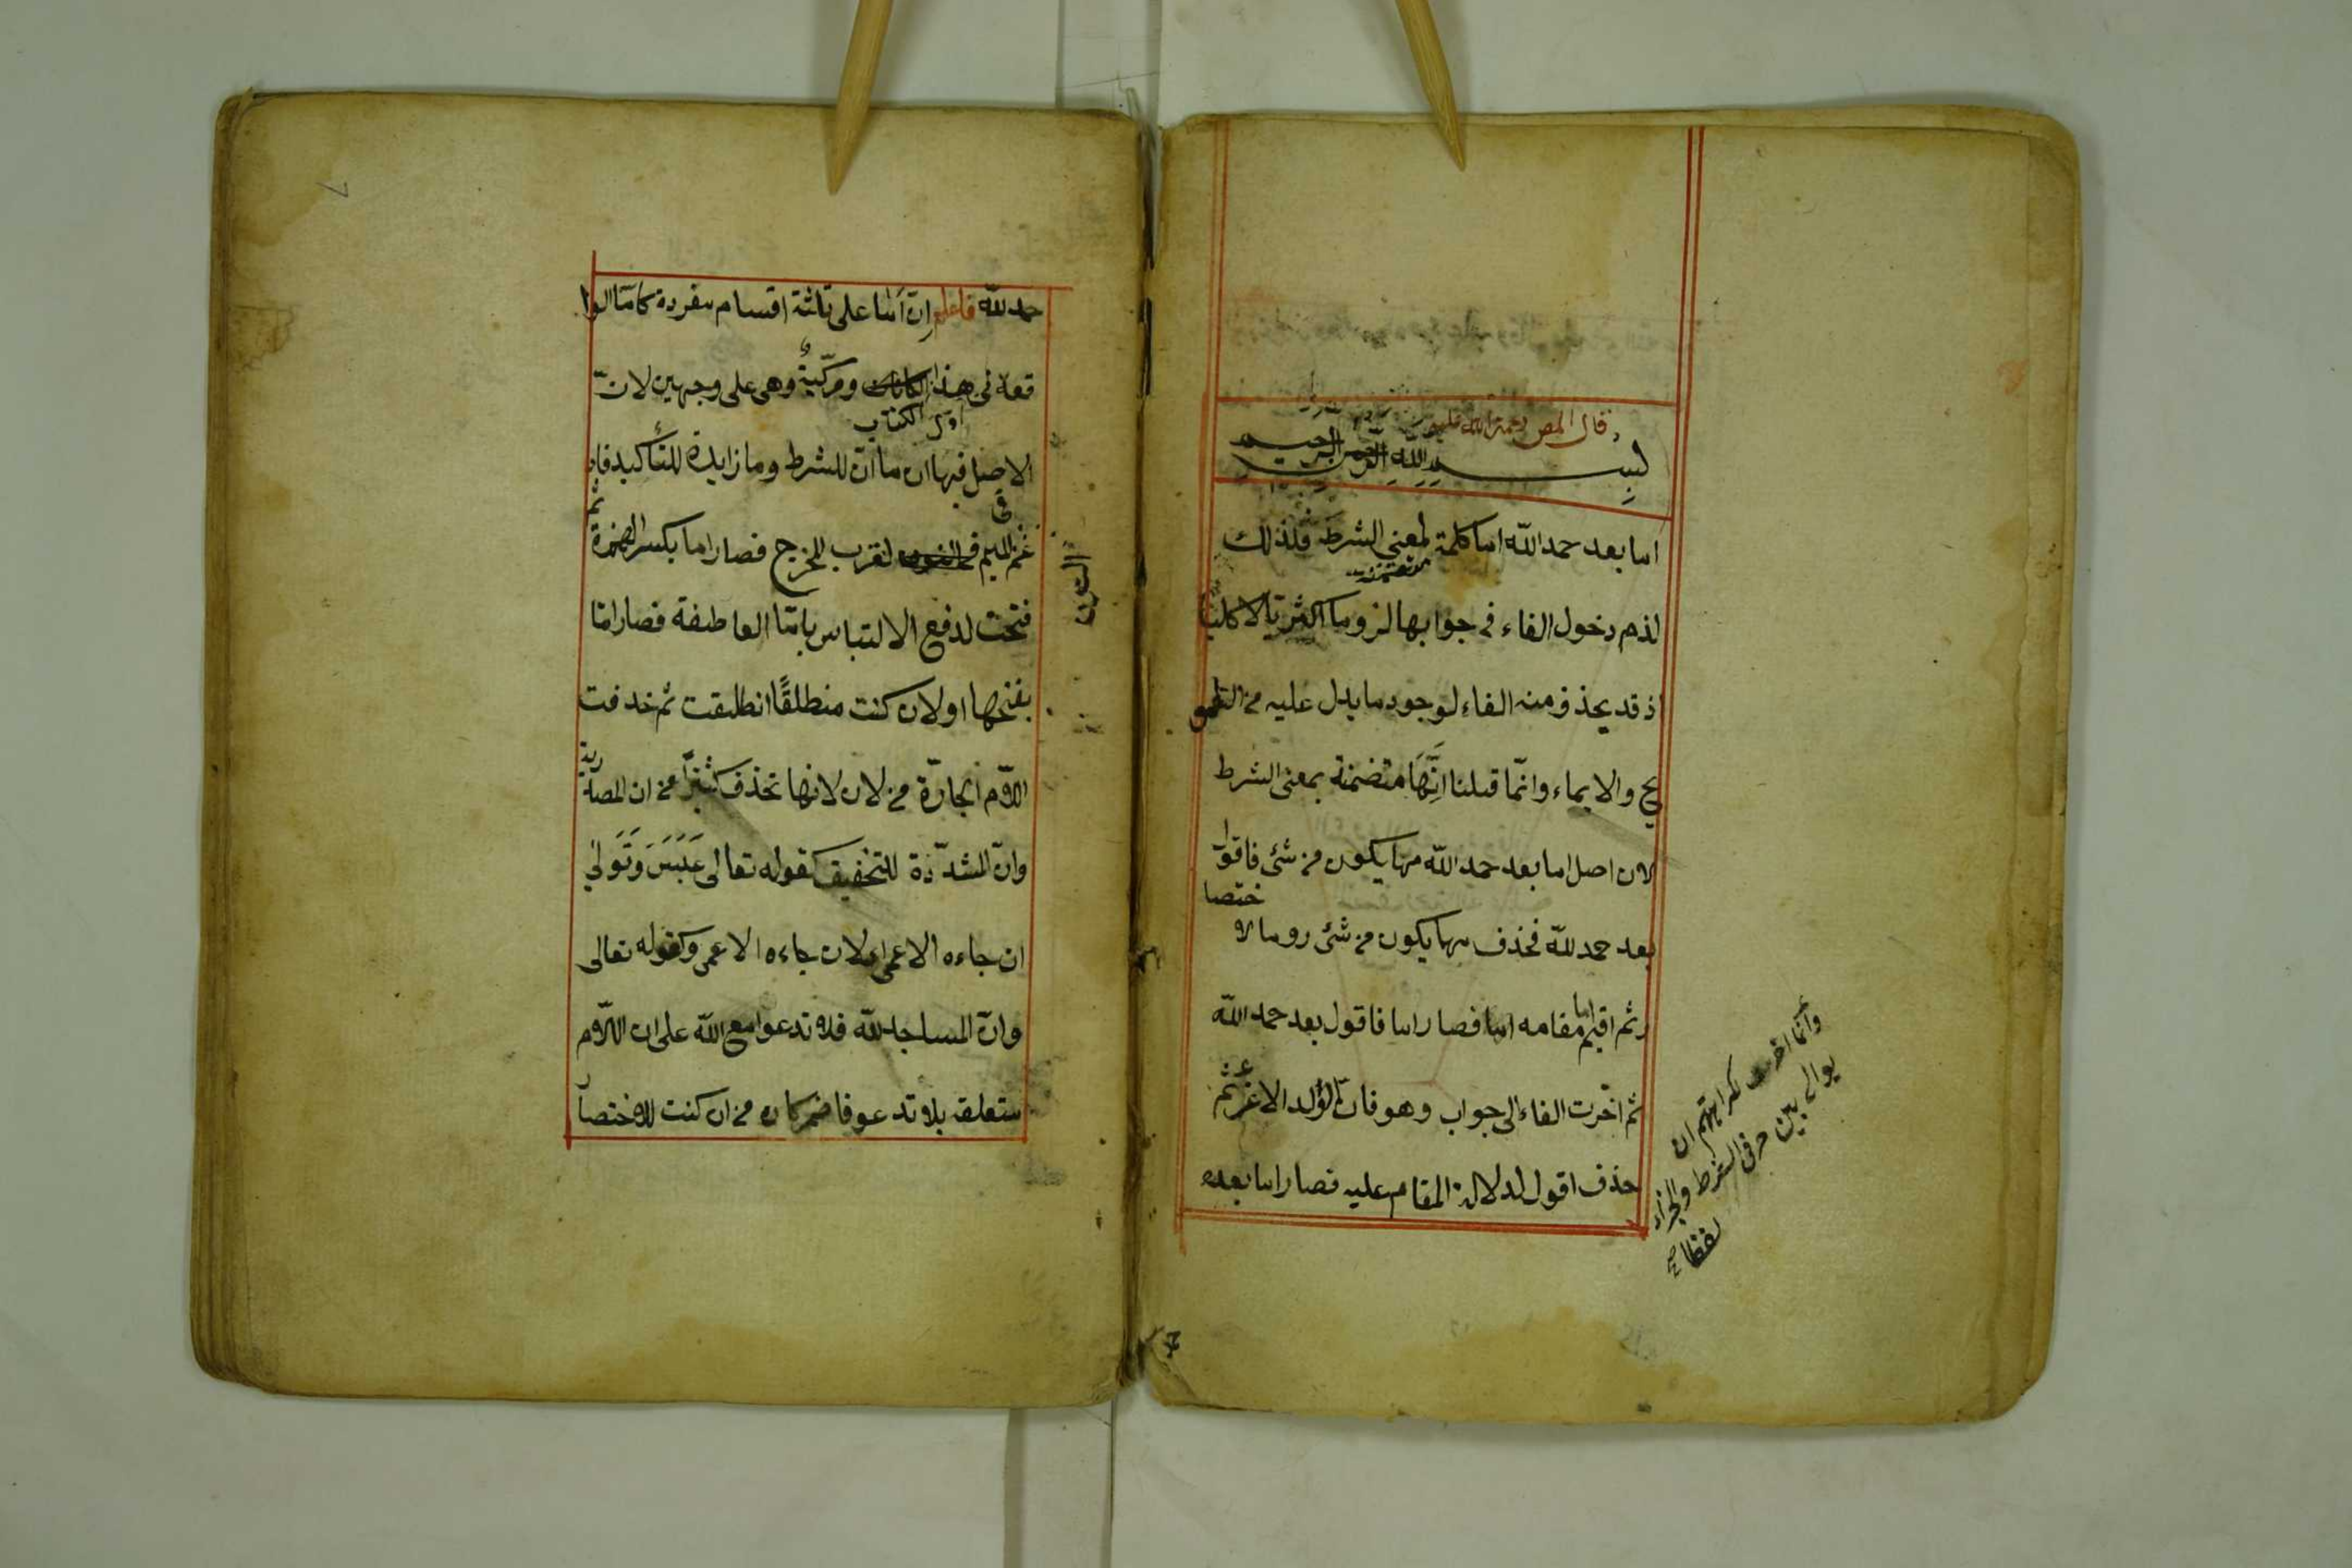 قال المص رحمة الله عليه
بسم الله الرحمن الرحيم
اما بعد حمد الله اما كلمة لمعنى الشرط فلذلك
متضمنة
لذم دخول الفاء في جوابها لزوما اكثريا لا كليا
اذ قد يحذف منه الفاء لوجود ما يدل عليه من التلمو
يح والايماء وانّما قبلنا اِنَّهَا متضمنة بمعنى الشرط
لان اصل اما بعد حمد الله مهما يكون من شئ فاقول
ختصا
بعد حمد لله فحذف مهما يكون من شئ روما لا
رثم اقيم اما مقامه فصار اما فاقول بعد حمد الله
ثم اخّرت الفاء الى جواب وهو فان الولد الاغر ثم
حذف اقول لدلالة المقام عليه فصار اما بعده
وانما اخرت لكراهتهم ان
يوالى بين حرفى الشرط والجزاء
لفظا صح
حمد لله فاعلم اِنّ أمّا على ثلثة اقسام مفردة كامّا الوا
قعة في هذا ومركّبةٌ وهى على وجهين لانّ
اول الكتاب
الاصل فيها ان ما انّ للشرط وما زايدة للتأكيد فاد
غم الميم في لقرب المخرج فصار اما بكسر الهمزة
ثم
النون
فتحت لدفع الالتباس بامّا العاطفة فصار امّا
بفتحها او لان كنت منطلقًا انطلقت ثم حذفت
اللّام الجارّة من لان لانها تحذف كثيرًا من ان المصد
رية
وانّ المشدّدة للتخفيف كقوله تعالى عَبَسَ وَتَوَلّى
ان جاءه الاعمى اى لان جاءه الاعمى وكقوله تعالى
وانّ المساجد لله فلا تدعوا مع الله على ان اللّام
متعلق بلا تدعوا فاضمر كان من ان كنت للاختصا